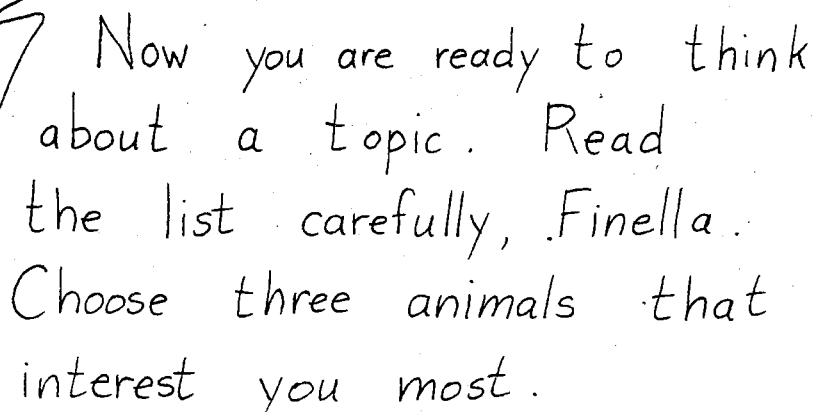 Now you are ready to think
about a topic. Read
the list carefully, Finella.
Choose three animals that
interest you most.